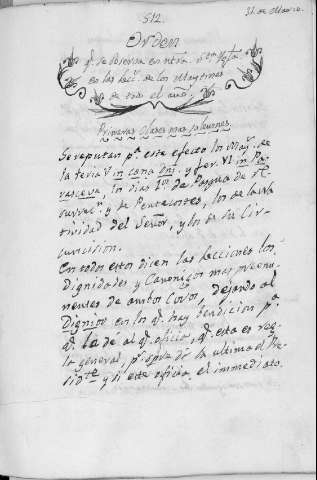 512.
31 de Marzo.
Orden
q.e se observa en ntra. Sta. Ygla.
en las lec.s de los Maytines
de todo el año.
Primeras clases mas solemnes.
Se reputan p.a este efecto los May.s de
la feria V in cœna Dni. y fer. VI in Pa
rasceve, los dias 1.os de Pasqua de Re
surrec.n y de Pentecostes, los de la Na
tividad del Señor, y los de la Cir
cuncision.
En todos estos dicen las lecciones los
Dignidades y Canonigos mas preemi
nentes de ambos Coros, dejando al
Dignior en los q.e hay bendicion p.a
q.e la de al q.e oficia, q.e esta es reg
la general, p.r ser de la ultima el Pre
sid.te y si este oficia el immediato.